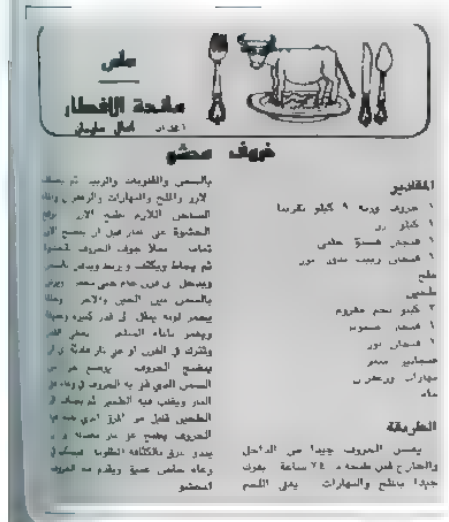 على
مائدة الافطار
اعداد : امال سليمان
خروف محشو
المقادير
١ خروف وزنه ٩ كيلو تقريبا
١ كيلو رز
١ فنجان فستق حلبي
١ فنجان زبيب بدون بزر
ملح
طحين
٢ كيلو لحم مفروم
١ فنجان صنوبر
١ فنجان لوز
سمن
بهارات وزعفران
ماء
الطريقة
يغسل الخروف جيدا من الداخل
والخارج قبل طبخه بـ ٢٤ ساعة يفرك
جيدا بالملح والبهارات يقلى اللحم
بالسمن والقلوبات والزبيب ثم يضاف
الارز والملح والبهارات والزعفران
الساخن اللازم لطبخ الارز ترفع
الحشوة عن النار قبل ان ينضج الارز
تماما يملأ جوف الخروف بالحشوة
ثم يخاط ويكتف ويربط ويدهن بالسمن
ويدخل
بالسمن من الحين والاخر
يحمر لونه ينقل الى قدر كبيرة
ويغمر بالماء
ويترك في الفرن او على نار هادئة
ينضج الخروف يوضع
السمن الذي الخروف في وعاء على
النار ويقلب فيه الطحين ثم يضاف الى
الطحين قليل من المرق الذي
الخروف يوضع على نار
يبدو المرق بالكثافة المطلوبة فيسكب في
وعاء خاص عميق ويقدم مع الخروف
المحشو